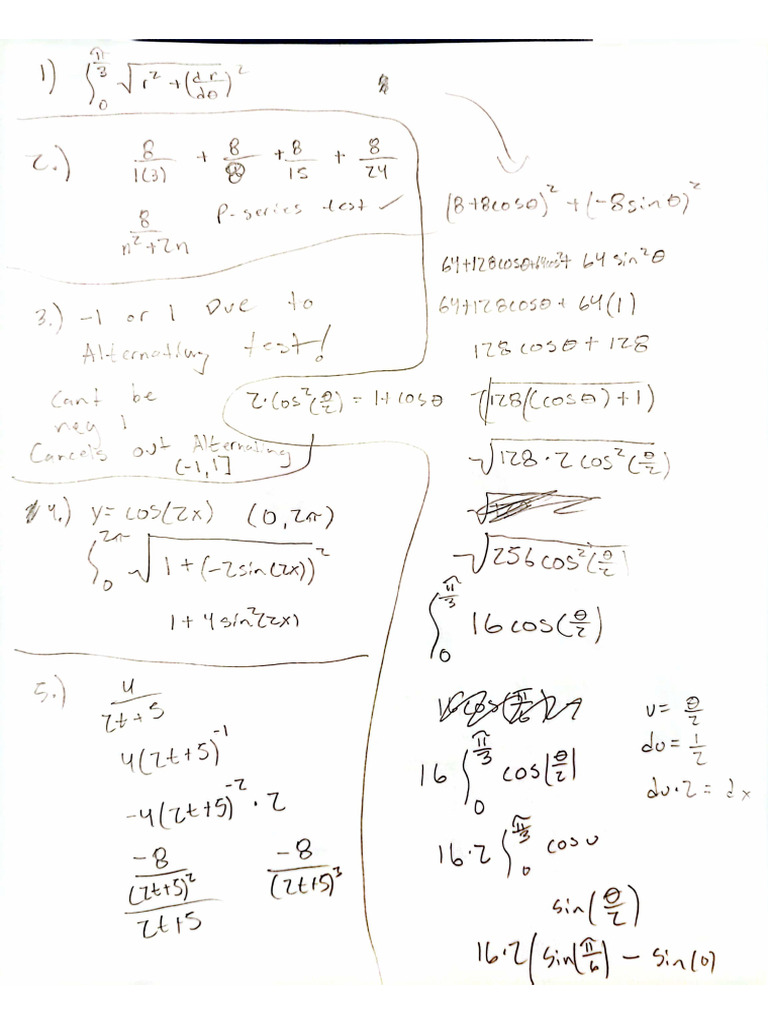 1) ∫₀^(π/3) √(r² + (dr/dθ)²)
2.) 8/1(3) + 8/8 + 8/15 + 8/24
8/(n²+2n) P-series test ✓
3.) -1 or 1 Due to
Alternating test!
Cant be
neg 1
Cancels out Alternating
(-1,1]
2·cos²(θ/2) = 1+cosθ
4.) y=cos(2x) (0,2π)
∫₀^(2π) √(1+(-2sin(2x))²)
1+4sin²(2x)
5.) 4/(2t+5)
4(2t+5)⁻¹
-4(2t+5)⁻²·2
(-8/(2t+5)²)/(2t+5) -8/(2t+5)³
(8+8cosθ)²+(-8sinθ)²
64+128cosθ+64cos²+ 64sin²θ
64+128cosθ+64(1)
128cosθ+128
√(128((cosθ)+1)
√(128·2cos²(θ/2))
√(256cos²(θ/2)
∫₀^(π/3) 16cos(θ/2)
16 ∫₀^(π/3) cos(θ/2)
u= θ/2
du= 1/2
du·2=dx
16·2 ∫₀^(π/3) cosu
sin(θ/2)
16·2(sin(π/6) - sin(0)